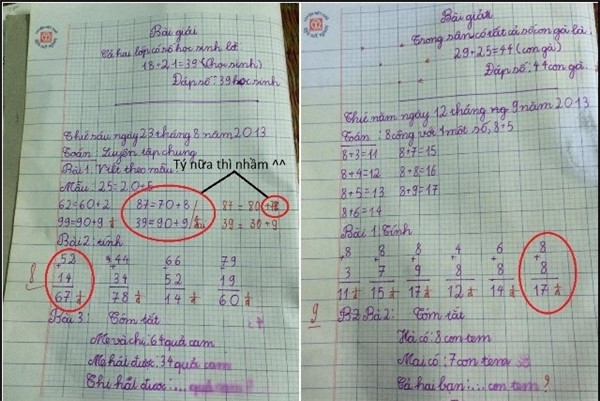 Bài giải
Cả hai lớp có số học sinh là:
18+21=39 (học sinh)
Đáp số: 39 học sinh
Thứ sáu ngày 23 tháng 8 năm 2013
Toán: Luyện tập chung
Bài 1: Viết theo mẫu
Tý nữa thì nhầm ^^
Mẫu: 25=20+5
62=60+2 87=70+8 87=80+
99=90+9 39=90+9 39=30+9
Bài 2: tính
+52 +44 +66 79
14 34 52 19
67 78 14 60
8
Bài 3: Tóm tắt
Mẹ và chị: 64 quả cam
Mẹ hái được: 34 quả cam
Chị hái được:...
Bài giải
Trong sân có tất cả số con gà là:
29+25=44 (con gà)
Đáp số: 44 con gà.
Thứ năm ngày 12 tháng 9 năm 2013
Toán: 8 cộng với 1 một số, 8+5
8+3=11 8+7=15
8+4=12 8+8=16
8+5=13 8+9=17
8+6=14
Bài 1: Tính
+8 +8 +8 +4 +6 +8
3 7 9 8 8 8
11 15 17 12 14 17
9
B2 Bài 2: Tóm tắt
Hà có: 8 con tem
Mai có: 7 con tem
Cả hai bạn:... con tem?